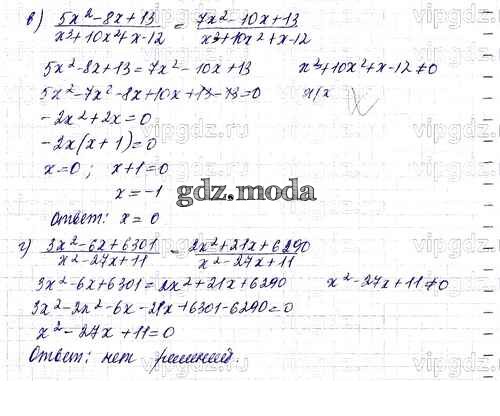 в) 5x²-8x+13 / x³+10x²+x-12 = 7x²-10x+13 / x³+10x²+x-12
5x²-8x+13=7x²-10x+13    x³+10x²+x-12≠0
5x²-7x²-8x+10x+13-13=0
-2x²+2x=0
-2x(x+1)=0
x=0; x+1=0
x=-1
gdz.moda
Ответ: x=0
г) 3x²-6x+6301 / x²-27x+11 = 2x²+21x+6290 / x²-27x+11
3x²-6x+6301=2x²+21x+6290    x²-27x+11≠0
3x²-2x²-6x-21x+6301-6290=0
x²-27x+11=0
Ответ: нет решений.
vipgdz.ru